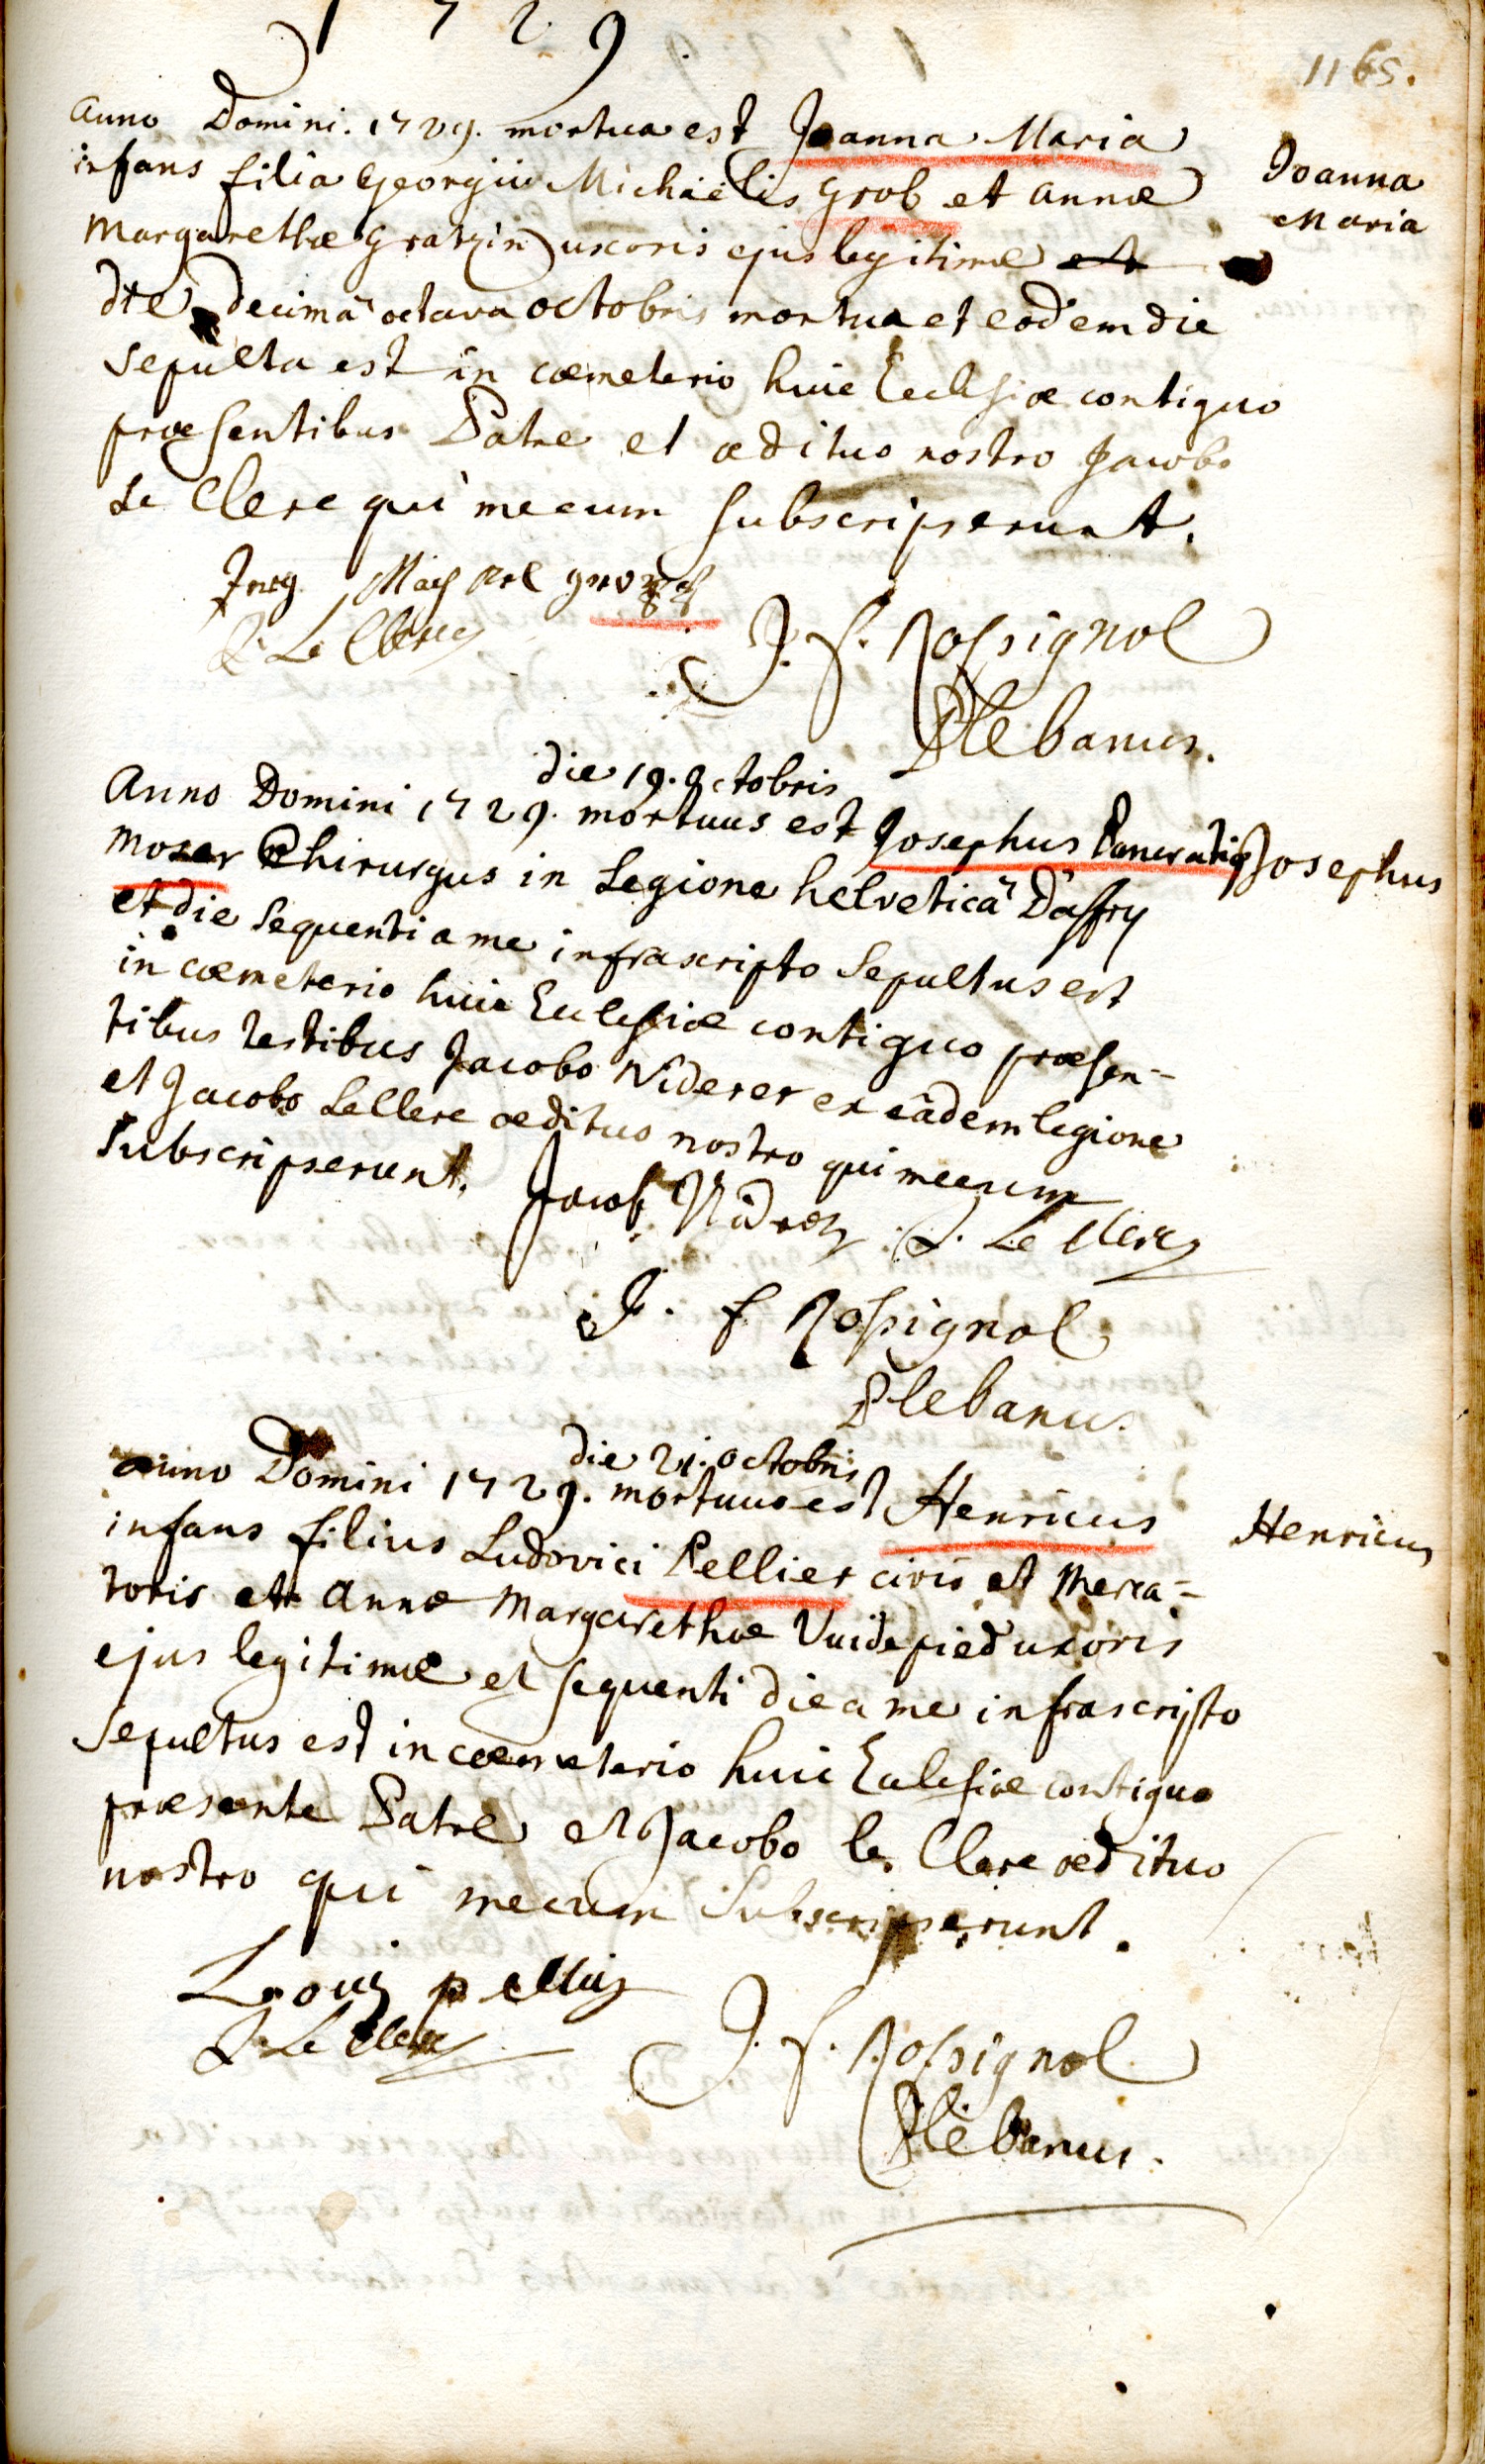 1729
1165.
Anno Domini. 1729. mortua est Joanna Maria
infans filia Georgii Michaelis Grob et annæ
Margarethæ Gratzin uxoris ejus legitimæ
die decimâ octava octobris mortua et eodem die
sepulta est in cœmeterio huic Ecclesiæ contiguo
præsentibus Patre et ædituo nostro Jacobo
Le Clerc qui mecum subscripserunt.
Joanna
Maria
J. Le Clerc
J. f. Rossignol
Plebanus.
die 19. octobris
Anno Domini 1729. mortuus est Josephus Pancratius
Moser Chirurgus in Legione helveticâ Daffry
et die sequenti a me infrascripto Sepultus est
in cœmeterio huic Ecclesiæ contiguo præsen-
tibus testibus Jacobo Niderer ex eâdem legione
et Jacobo Leclerc ædituo nostro qui mecum
subscripserunt.
Josephus
Jacob J. Le Clerc
J. f Rossignol
Plebanus.
die 21. octobris
anno Domini 1729. mortuus est Henricus
infans filius Ludovici Pellier civis et Merca-
toris et Annæ Margarethæ Vuidepied uxoris
ejus legitimæ et sequenti die a me infrascripto
Sepultus est in cœmeterio huic Ecclesiæ contiguo
præsente Patre et Jacobo le Clerc ædituo
nostro qui mecum Subscripserunt.
Henricus
Louis pellier
J. Le Clerc
J. f. Rossignol
Plebanus.